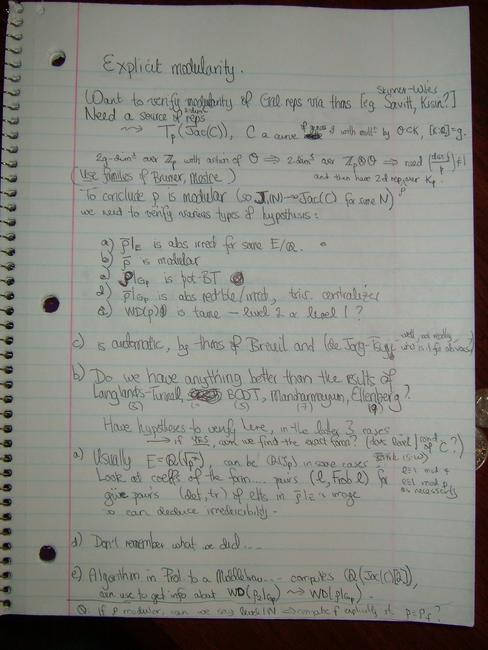 Explicit modularity.
Skinner-Wiles
Want to verify modularity of Gal reps via thms [eg Savitt, Kisin?]
Need a source of 2-diml reps
Tp(Jac(C)), C a curve of genus g with multn by O⊂K, [K:Q]=g.
2g-diml over Zp with action of O ⇒ 2-diml over Zp⊗O ⇒ need
and then have 2d rep over Kp.
(Use families of Brumer, Mestre)
To conclude ρ is modular (so J1(N)→Jac(C) for some N)
we need to verify various types of hypothesis:
a) ρ̄|E is abs irred for some E/Q.
b) ρ̄ is modular
c) ρ|Gp is pot-BT
d) ρ̄|Gp is abs red'ble/irred, triv. centralizer
e) WD(ρ) is tame – level 2 or level 1?
c) is automatic, by thms of Breuil and (de Jong-
b) Do we have anything better than the results of
Langlands-Tunnell, BCDT, Manoharmayum, Ellenberg?
(3) (5) (7) (9)
Have hypotheses to verify here, in the later 3 cases
→ if YES, can we find the exact form? (does level | cond of C?)
a) Usually E = Q(√p*) can be Q(ζp) in some cases
Look at coeffs of the form.... pairs (l, Frob l) for
give pairs (det, tr) of elts in ρ̄|E's image
so can deduce irreducibility.
l≡1 mod 4
l≡1 mod p
as necessary
d) Don't remember what we did....
e) Algorithm in Prol to a Middlebrow.... computes Q(Jac(C)[2]),
can use to get info about WD(ρ2|Gp) ⇝ WD(ρ|Gp).
Q: If ρ modular, can we say level | N ⇒ compute f explicitly st. ρ=ρf?